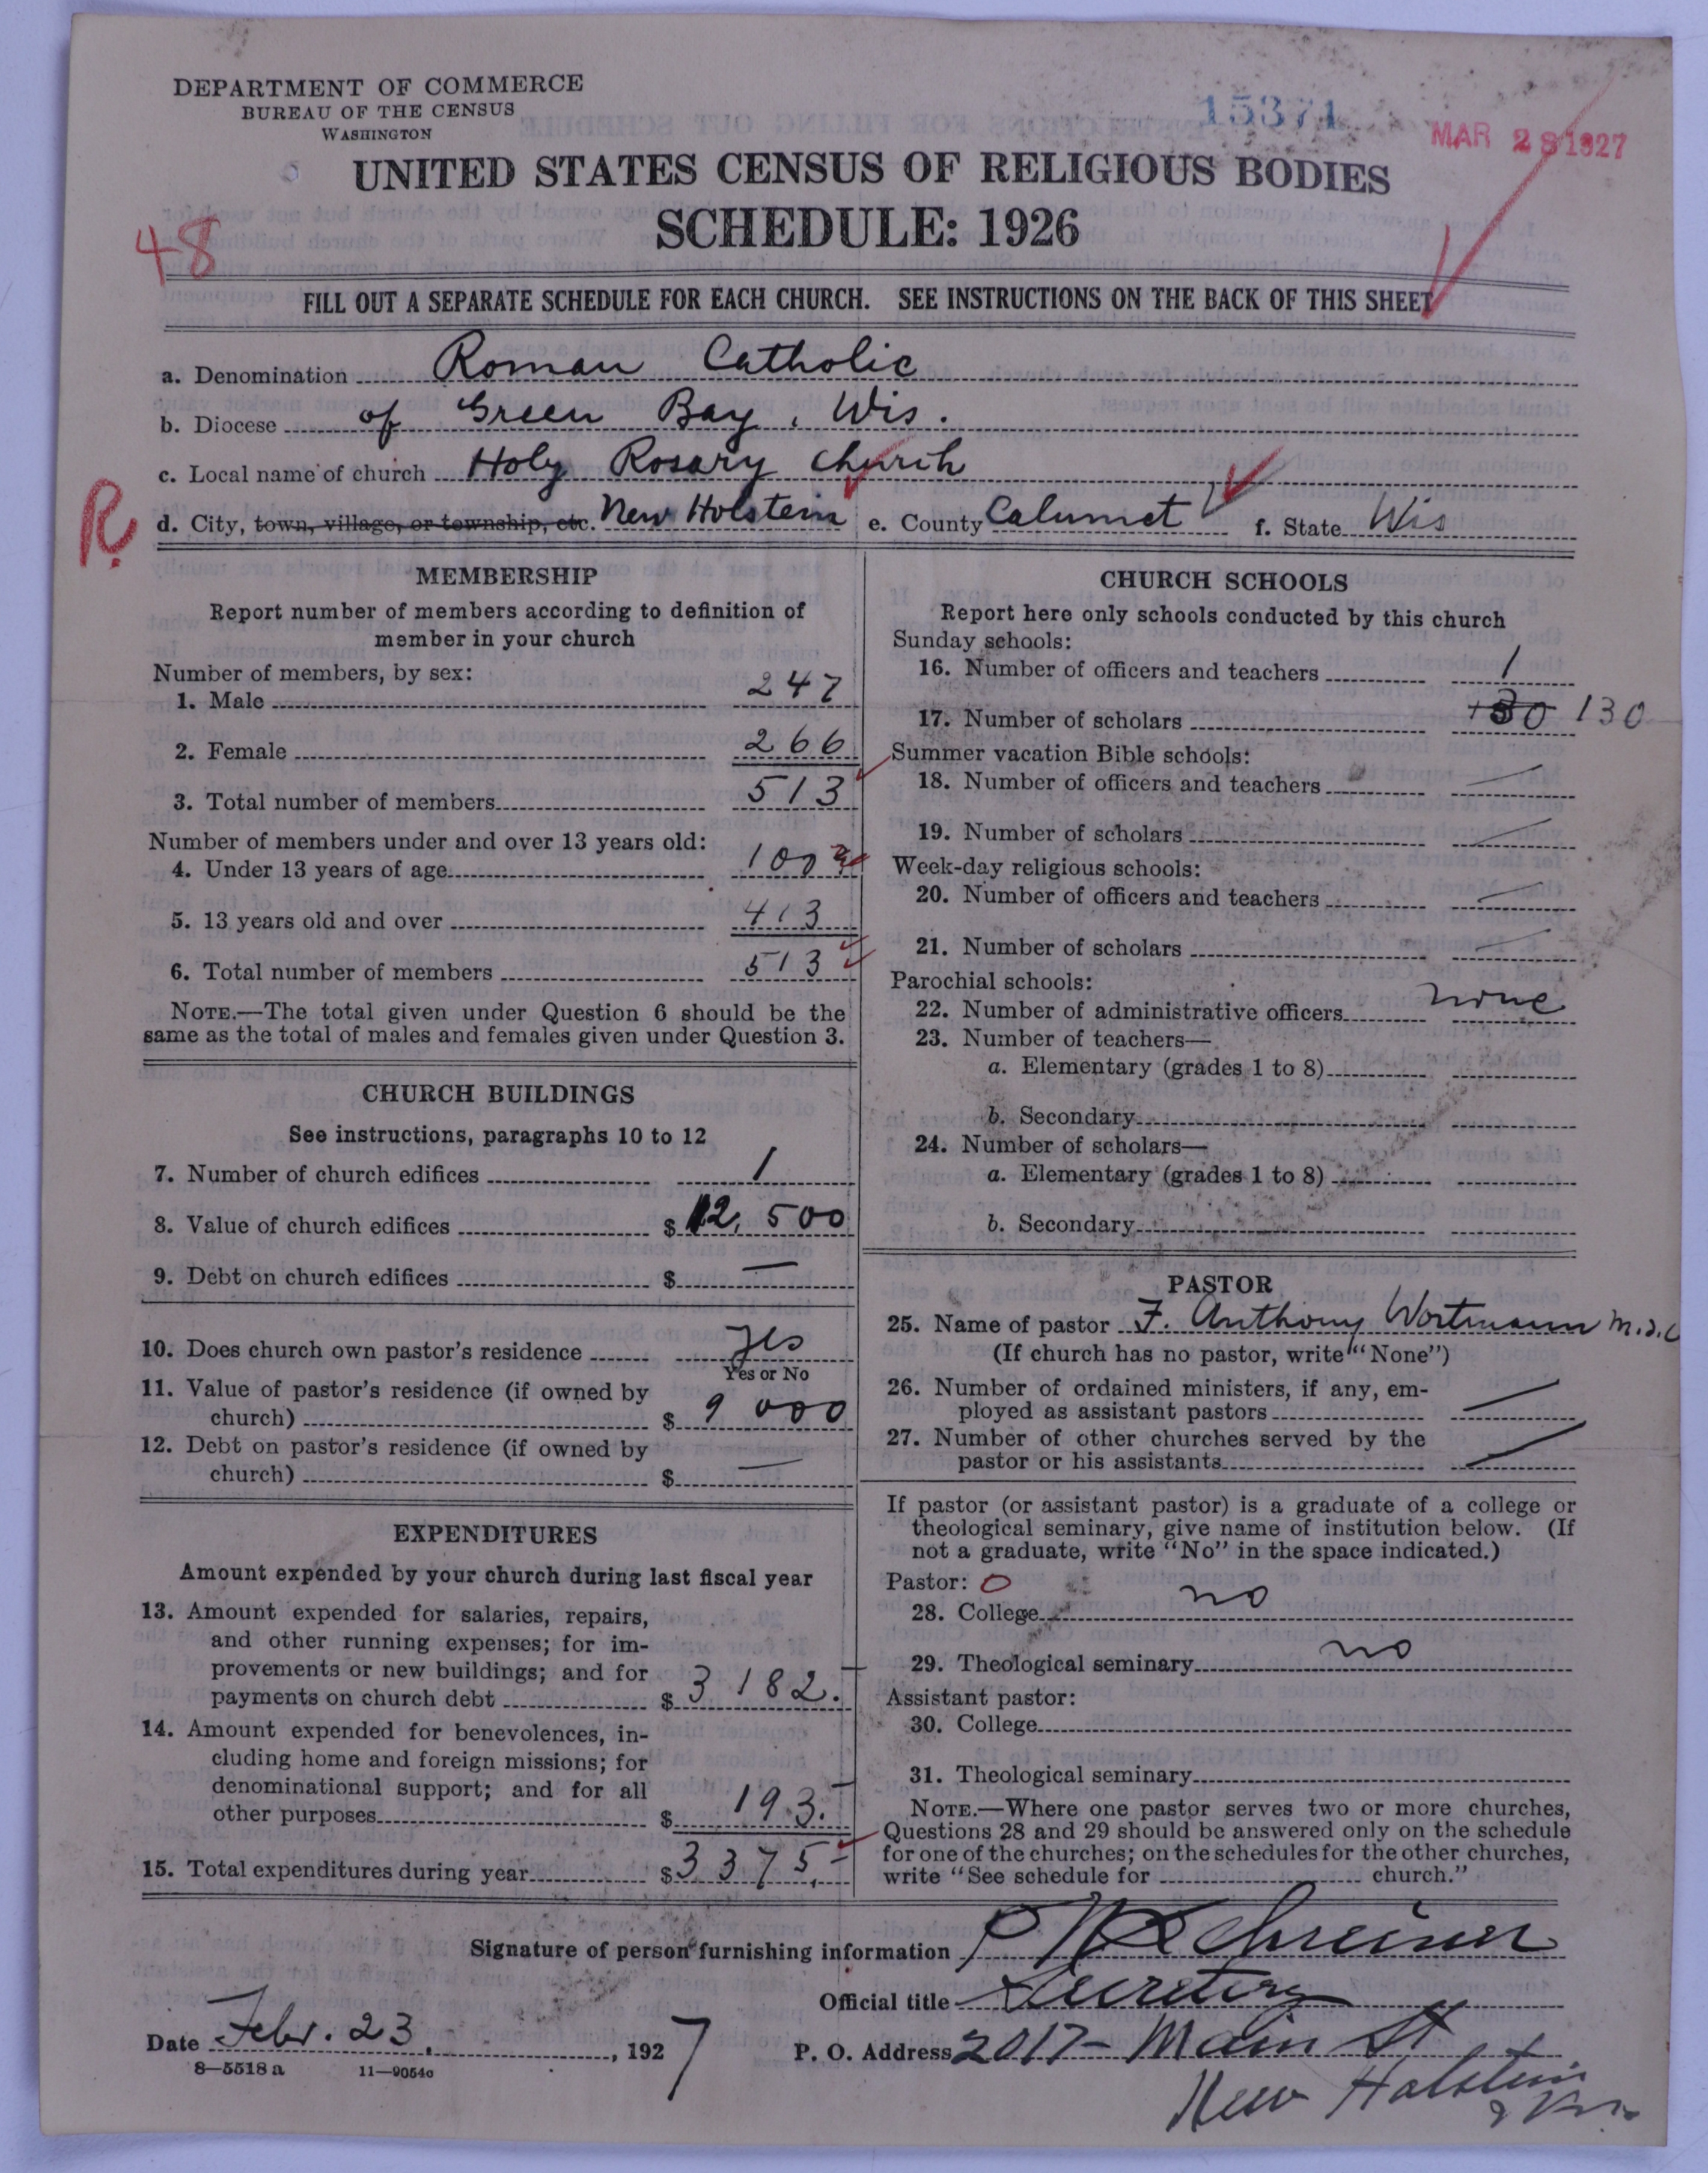 DEPARTMENT OF COMMERCE
BUREAU OF THE CENSUS
WASHINGTON
15371
MAR 28 1927
UNITED STATES CENSUS OF RELIGIOUS BODIES
SCHEDULE: 1926
48
FILL OUT A SEPARATE SCHEDULE FOR EACH CHURCH. SEE INSTRUCTIONS ON THE BACK OF THIS SHEET
a. Denomination Roman Catholic
b. Diocese of Green Bay, Wis.
c. Local name of church Holy Rosary Church
R.
d. City, town, village, or township, etc. New Holstein e. County Calumet f. State Wis
MEMBERSHIP
Report number of members according to definition of
member in your church
Number of members, by sex:
1. Male 247
2. Female 266
3. Total number of members 513
Number of members under and over 13 years old:
4. Under 13 years of age 100
5. 13 years old and over 413
6. Total number of members 513
NOTE.—The total given under Question 6 should be the
same as the total of males and females given under Question 3.
CHURCH BUILDINGS
See instructions, paragraphs 10 to 12
7. Number of church edifices 1
8. Value of church edifices $ 12,500
9. Debt on church edifices $ —
10. Does church own pastor's residence yes
Yes or No
11. Value of pastor's residence (if owned by
church) $ 9 000
12. Debt on pastor's residence (if owned by
church) $ —
EXPENDITURES
Amount expended by your church during last fiscal year
13. Amount expended for salaries, repairs,
and other running expenses; for im-
provements or new buildings; and for
payments on church debt $ 3 182.-
14. Amount expended for benevolences, in-
cluding home and foreign missions; for
denominational support; and for all
other purposes $ 193.-
15. Total expenditures during year $ 3375.-
CHURCH SCHOOLS
Report here only schools conducted by this church
Sunday schools:
16. Number of officers and teachers 1
17. Number of scholars 130 130
Summer vacation Bible schools:
18. Number of officers and teachers —
19. Number of scholars —
Week-day religious schools:
20. Number of officers and teachers —
21. Number of scholars —
Parochial schools:
22. Number of administrative officers none
23. Number of teachers—
a. Elementary (grades 1 to 8)
b. Secondary
24. Number of scholars—
a. Elementary (grades 1 to 8)
b. Secondary
PASTOR
25. Name of pastor F. Anthony Wortmann M.S.C
(If church has no pastor, write "None")
26. Number of ordained ministers, if any, em-
ployed as assistant pastors —
27. Number of other churches served by the
pastor or his assistants —
If pastor (or assistant pastor) is a graduate of a college or
theological seminary, give name of institution below. (If
not a graduate, write "No" in the space indicated.)
Pastor: O
28. College no
29. Theological seminary no
Assistant pastor:
30. College
31. Theological seminary
NOTE.—Where one pastor serves two or more churches,
Questions 28 and 29 should be answered only on the schedule
for one of the churches; on the schedules for the other churches,
write "See schedule for church."
Signature of person furnishing information P W Schreiner
Official title Secretary
Date Febr. 23, 1927
P. O. Address 2017- Main St
New Holstein
Wis
8—5518 a 11—9054a